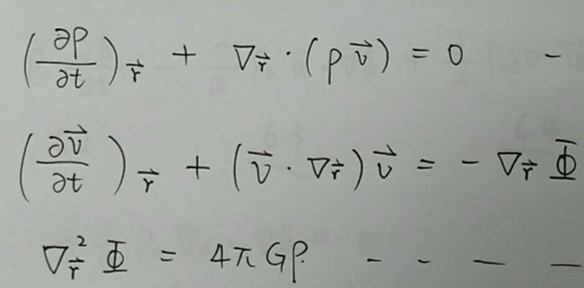 (∂ρ/∂t)_r⃗ + ∇_r⃗ · (ρv⃗) = 0 -
(∂v⃗/∂t)_r⃗ + (v⃗ · ∇_r⃗)v⃗ = - ∇_r⃗ Φ
∇_r⃗² Φ = 4πGρ. - - — —